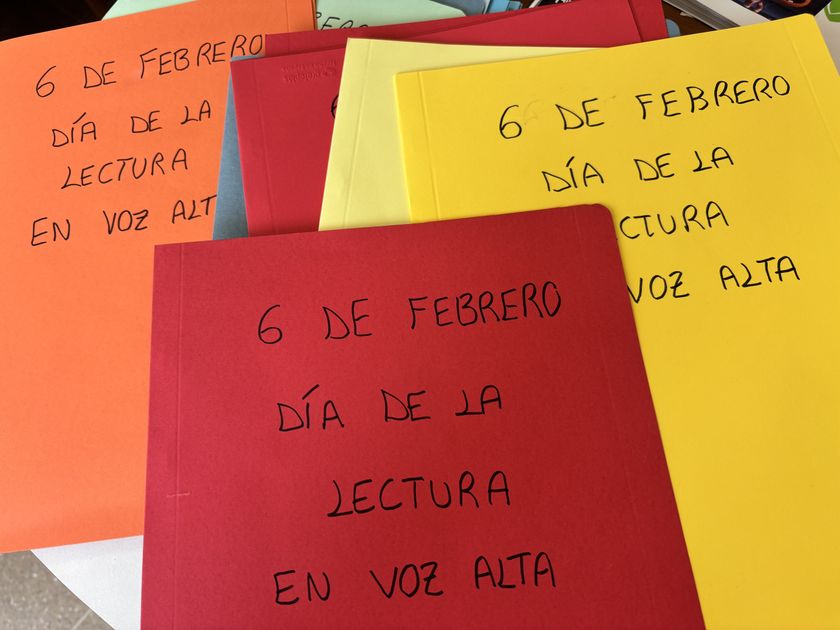 6 DE FEBRERO
DÍA DE LA
LECTURA
EN VOZ ALT
6 DE FEBRERO
DÍA DE LA
CTURA
VOZ ALTA
6 DE FEBRERO
DÍA DE LA
LECTURA
EN VOZ ALTA